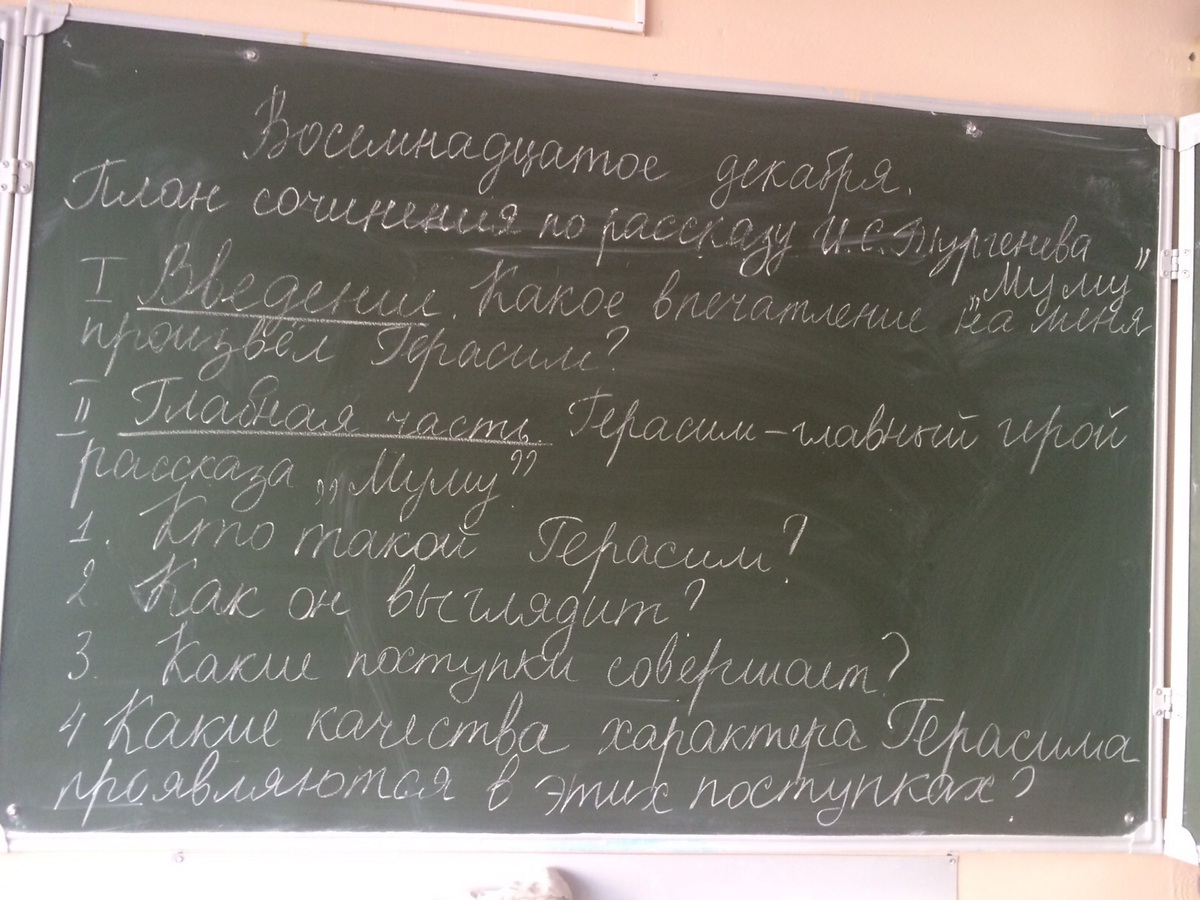 Восемнадцатое декабря.
План сочинения по рассказу И.С.Тургенева
„Муму”
I Введение. Какое впечатление на меня
произвёл Герасим?
II Главная часть. Герасим – главный герой
рассказа „Муму”
1. Кто такой Герасим?
2. Как он выглядит?
3. Какие поступки совершает?
4 Какие качества характера Герасима
проявляются в этих поступках?